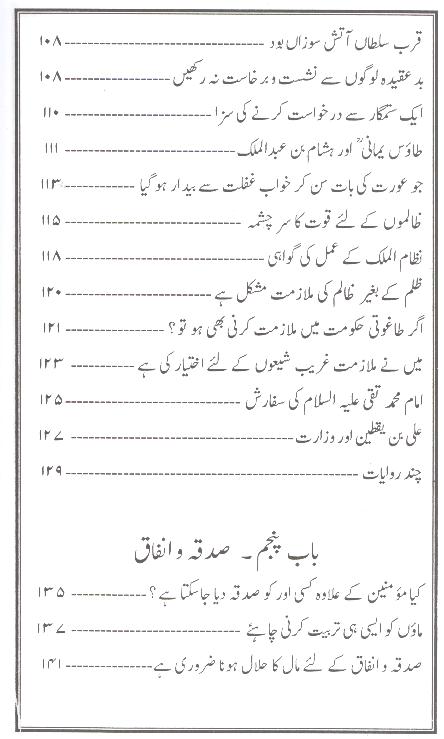 قرب سلطاں آتش سوزاں بود ---------------------------- ۱۰۸
بد عقیدہ لوگوں سے نشست و برخاست نہ رکھیں -------------- ۱۰۸
ایک ستمگار سے درخواست کرنے کی سزا -------------------- ۱۱۰
طاؤس یمانیؒ اور ہشام بن عبدالملک ---------------------- ۱۱۱
جو عورت کی بات سن کر خواب غفلت سے بیدار ہو گیا ---------- ۱۱۳
ظالموں کے لئے قوت کا سر چشمہ ------------------------ ۱۱۵
نظام الملک کے عمل کی گواہی -------------------------- ۱۱۸
ظلم کے بغیر ظالم کی ملازمت مشکل ہے -------------------- ۱۲۰
اگر طاغوتی حکومت میں ملازمت کرنی بھی ہو تو؟ -------------- ۱۲۱
میں نے ملازمت غریب شیعوں کے لئے اختیار کی ہے ---------- ۱۲۳
امام محمد تقی علیہ السلام کی سفارش ---------------------- ۱۲۵
علی بن یقطین اور وزارت ------------------------------ ۱۲۷
چند روایات ---------------------------------------- ۱۲۹
باب پنجم ۔ صدقہ و انفاق
کیا مؤمنین کے علاوہ کسی اور کو صدقہ دیا جاسکتا ہے؟ ---------- ۱۳۵
ماؤں کو ایسی ہی تربیت کرنی چاہئے ---------------------- ۱۳۷
صدقہ و انفاق کے لئے مال کا حلال ہونا ضروری ہے ---------- ۱۴۱